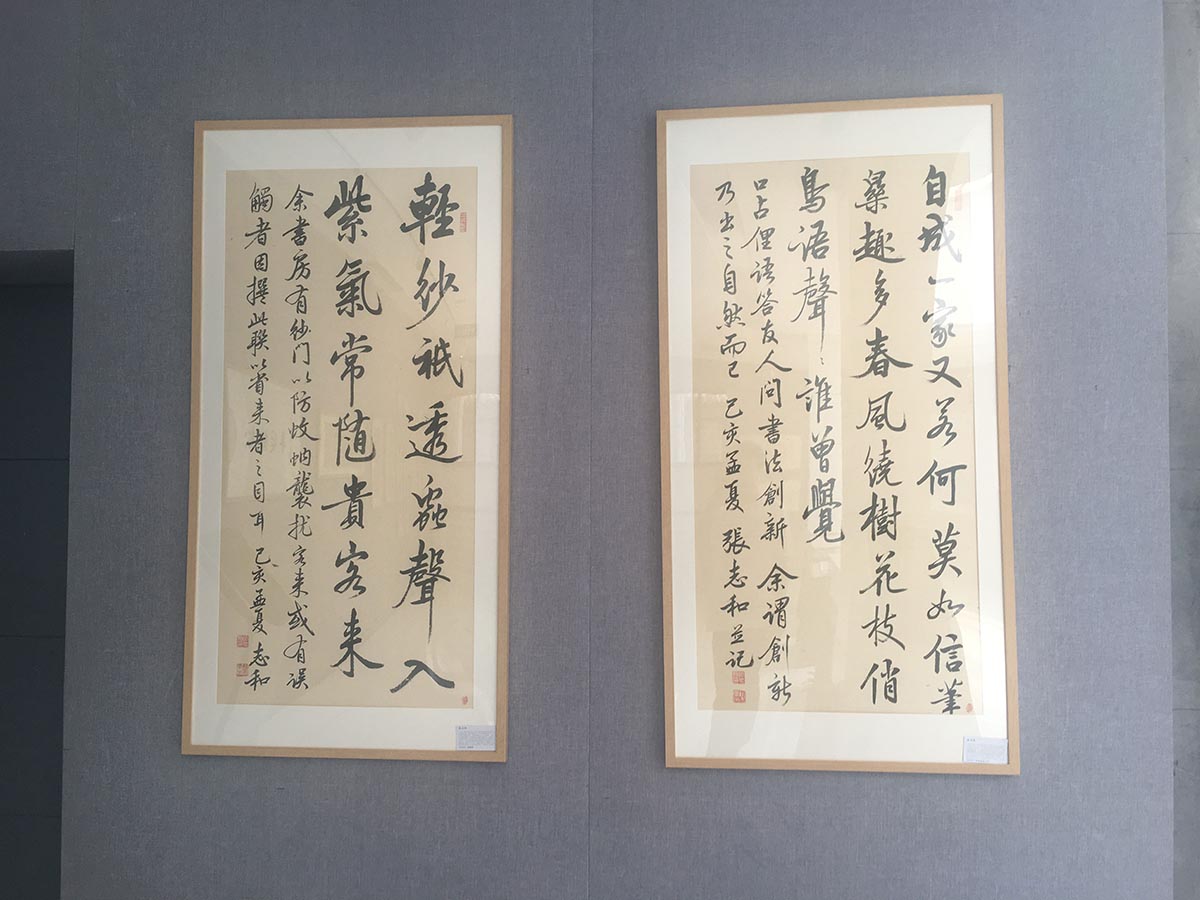 自成一家又若何莫如信筆
樂趣多春風繞樹花枝俏
鳥语聲〻誰曾覺
口占俚语答友人问書法創新 余谓創新
乃出之自然而已 己亥孟夏 張志和並记
輕紗祇透蟲聲入
紫氣常随貴客来
余書房有纱门以防蚊蚋襲扰客来或有误
觸者因撰此联以省来者之目耳 己亥孟夏 志和